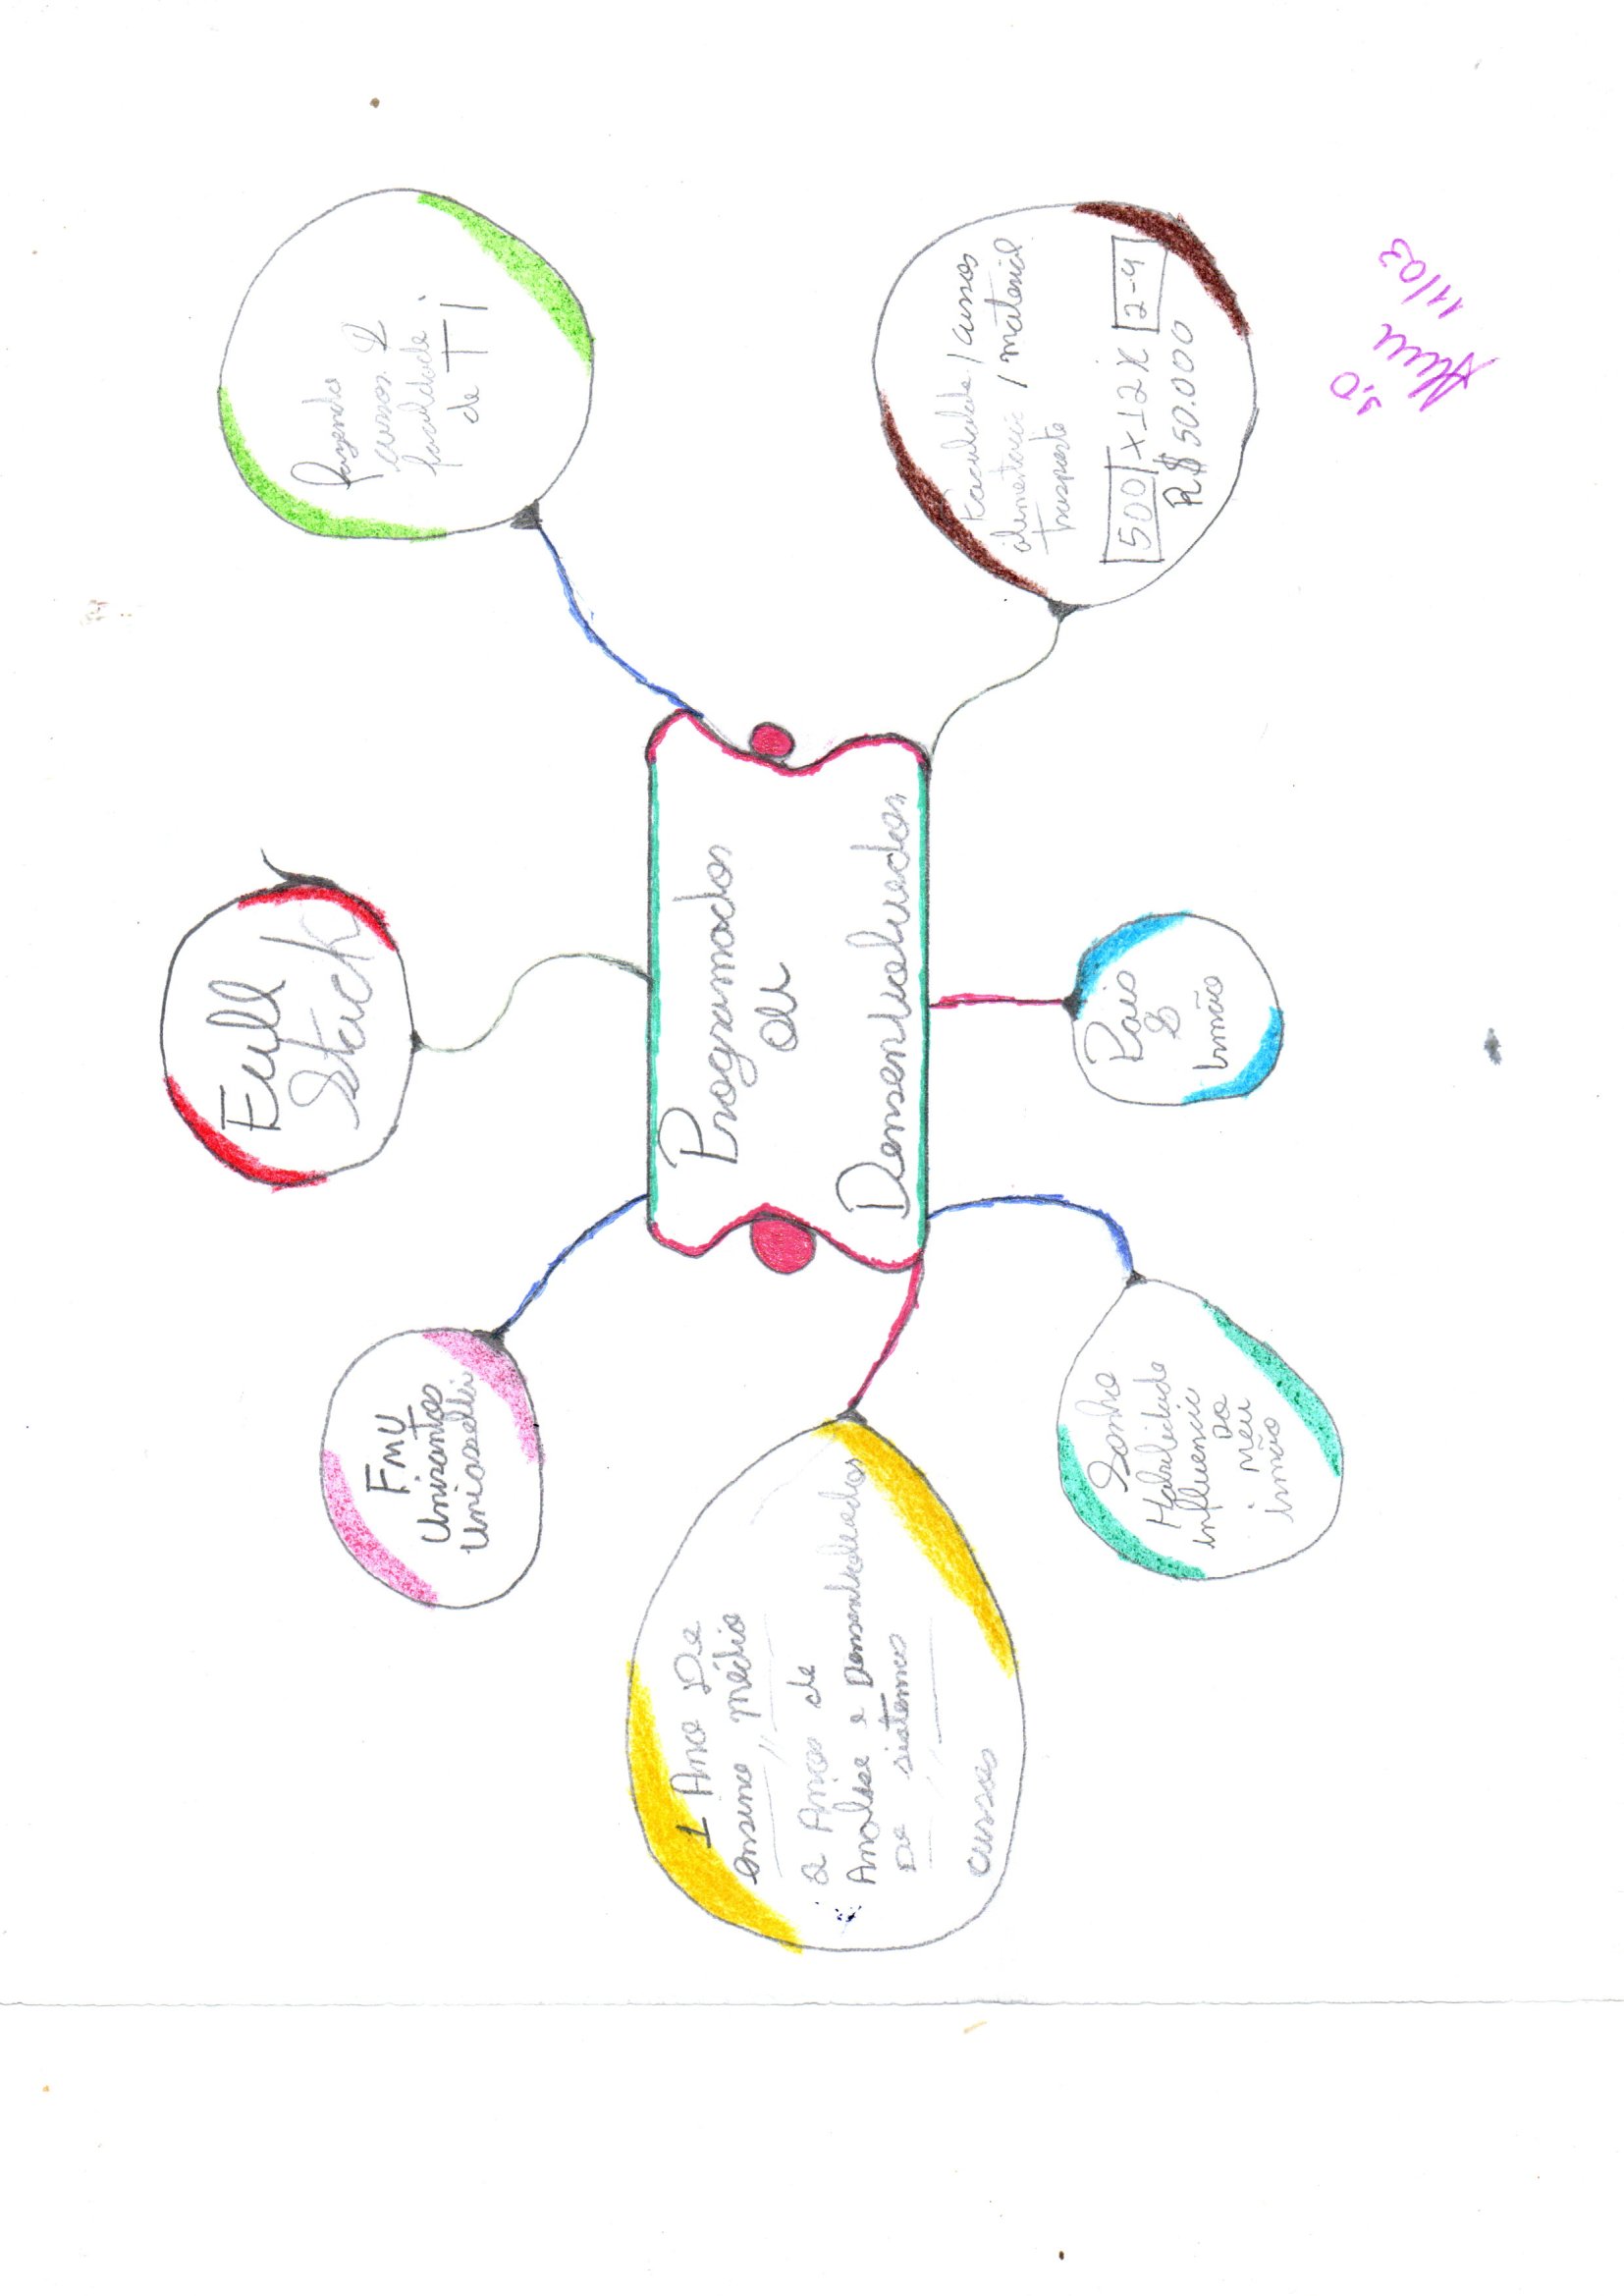 Full
Stack
Fmu
Unisantos
Uniasselvi
fazendo
cursos e
faculdade
de TI
Programador
ou
Densenvolvedor
1 Ano De
ensino médio
2 Anos de
Analise e Densenvolvedor
De sistemas
cursos
Faculdade / cursos
alimentaçã / material
trasporte
500 x 12 x 2-4
R$ 50.000
Sonho
Habilidade
influencia
Do
meu
irmão
Pais
&
irmão
1,0
11/03